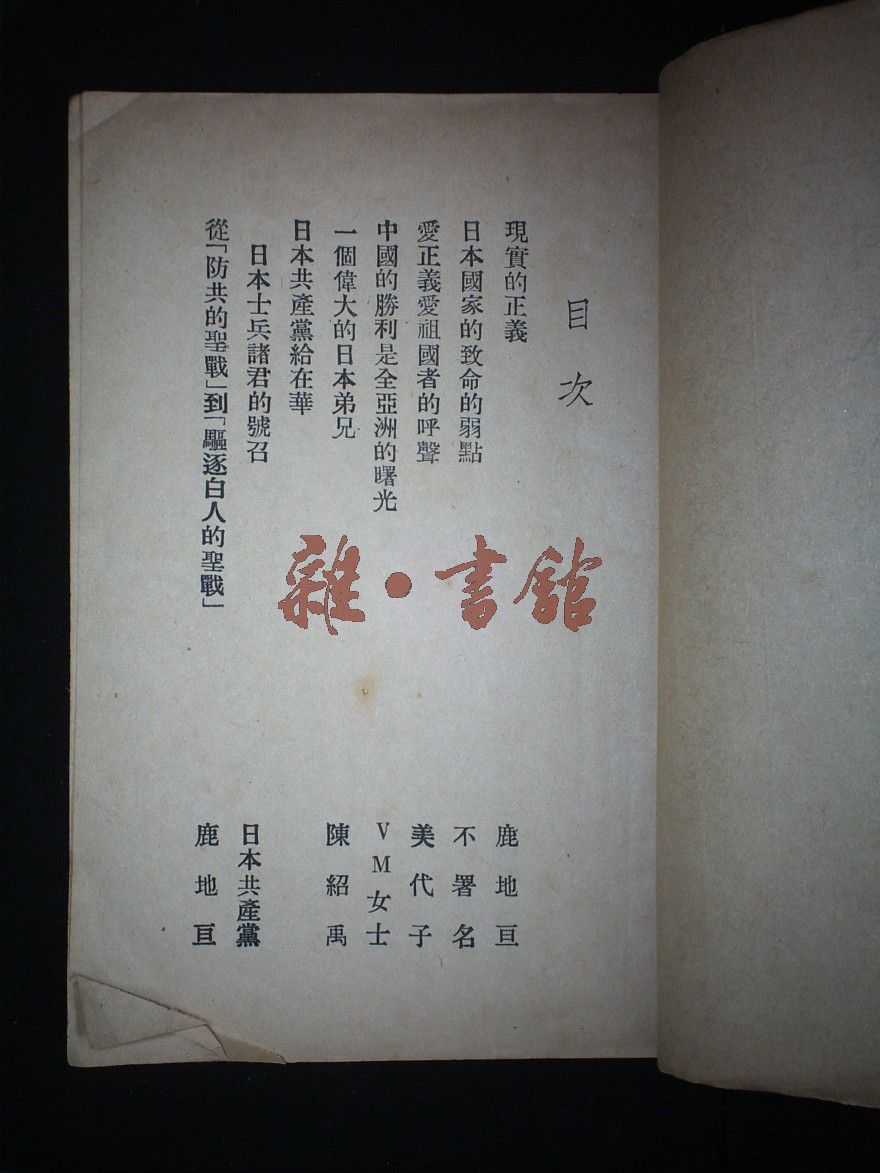 目次
現實的正義 鹿地亘
日本國家的致命的弱點 不署名
愛正義愛祖國者的呼聲 美代子
中國的勝利是全亞洲的曙光 VM女士
一個偉大的日本弟兄 陳紹禹
日本共產黨給在華
日本士兵諸君的號召 日本共產黨
從「防共的聖戰」到「驅逐白人的聖戰」 鹿地亘
雜·書館